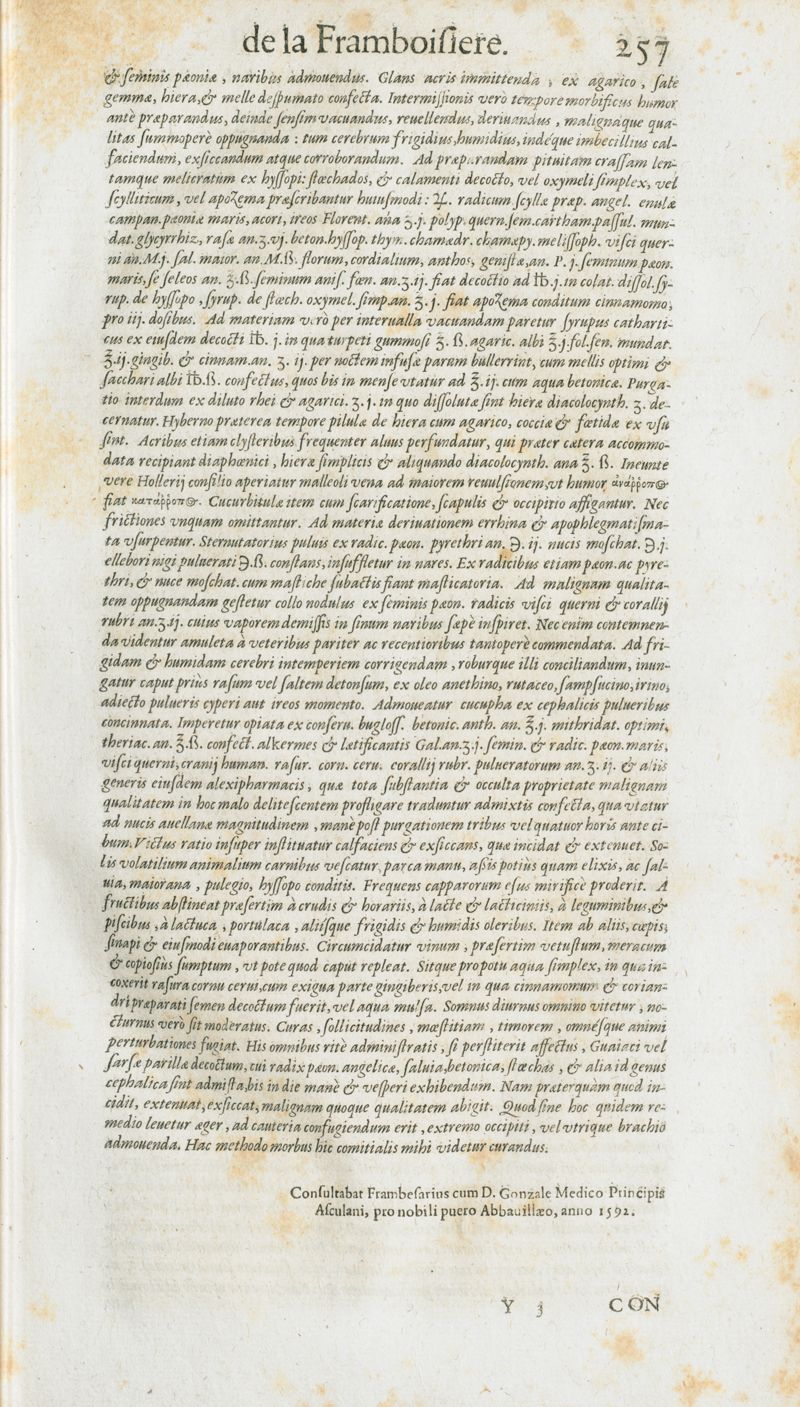 de la Framboiſiere. 257
& ſeminis pæoniæ, naribus admouendus. Glans acris immittenda, ex agarico, ſale
gemmæ, hiera, & melle deſpumato confecta. Intermiſſionis verò tempore morbificus humor
antè præparandus, deinde ſenſim vacuandus, reuellendus, deriuandus, malignaque qua-
litas ſummoperè oppugnanda: tum cerebrum frigidius, humidius, indéque imbecillius cal-
faciendum, exſiccandum atque corroborandum. Ad præparandam pituitam craſſam len-
tamque melicratum ex hyſſopi: ſtœchados, & calamenti decocto, vel oxymeli ſimplex, vel
ſcylliticum, vel apoZema præſcribantur huiuſmodi: ♃. radicum ſcyllæ præp. angel. enulæ
campan. pæoniæ maris, acori, ireos Florent. ana ʒ.j. polyp. quern. ſem. cartham. paſſul. mun-
dat. glycyrrhiz., raſæ an. ʒ.vj. beton. hyſſop. thym. chamædr. chamæpy. meliſſoph. viſci quer-
ni an. M.j. ſal. maior. an. M.ß. florum, cordialium, anthos, geniſtæ, an. P. j. ſeminum pæon.
maris, ſeſeleos an. ℥.ß. ſeminum aniſ. fœn. an. ʒ.ij. fiat decoctio ad ℔.j. in colat. diſſol. ſy-
rup. de hyſſopo, ſyrup. de ſtœch. oxymel. ſimp. an. ℥.j. fiat apoZema conditum cinnamomo,
pro iij. doſibus. Ad materiam verò per interualla vacuandam paretur ſyrupus catharti-
cus ex eiuſdem decocti ℔. j. in qua turpeti gummoſi ℥. ß. agaric. albi ℥.j. fol. ſen. mundat.
℥.ij. gingib. & cinnam. an. ʒ. ij. per noctem infuſa parum bullerrint, cum mellis optimi &
ſacchari albi ℔.ß. confectus, quos bis in menſe vtatur ad ℥.ij. cum aqua betonicæ. Purga-
tio interdum ex diluto rhei & agarici. ʒ. j. in quo diſſoluta ſint hieræ diacolocynth. ʒ. de-
cernatur. Hyberno præterea tempore pilulæ de hiera cum agarico, cocciæ & fœtidæ ex vſu
ſint. Acribus etiam clyſteribus frequenter aluus perfundatur, qui præter cætera accommo-
data recipiant diaphœnici, hieræ ſimplicis & aliquando diacolocynth. ana ℥. ß. Ineunte
vere Hollerij conſilio aperiatur malleoli vena ad maiorem reuulſionem, vt humor ἀνάῤῥοπος
fiat κατάῤῥοπος. Cucurbitulæ item cum ſcarificatione, ſcapulis & occipitio affigantur. Nec
frictiones vnquam omittantur. Ad materiæ deriuationem errhina & apophlegmatiſma-
ta vſurpentur. Sternutatorius puluis ex radic. pæon. pyrethri an. ℈. ij. nucis moſchat. ℈.j.
ellebori nigi puluerati ℈.ß. conſtans, inſuffletur in nares. Ex radicibus etiam pæon. ac pyre-
thri, & nuce moſchat. cum maſtiche ſubactis fiant maſticatoria. Ad malignam qualita-
tem oppugnandam geſtetur collo nodulus ex ſeminis pæon. radicis viſci querni & corallij
rubri an. ʒ.ij. cuius vaporem demiſſis in ſinum naribus ſæpè inſpiret. Nec enim contemnen-
da videntur amuleta à veteribus pariter ac recentioribus tantoperè commendata. Ad fri-
gidam & humidam cerebri intemperiem corrigendam, roburque illi conciliandum, inun-
gatur caput prius raſum vel ſaltem detonſum, ex oleo anethino, rutaceo, ſampſucino, irino,
adiecto pulueris cyperi aut ireos momento. Admoueatur cucupha ex cephalicis pulueribus
concinnata. Imperetur opiata ex conſeru. bugloſſ. betonic. anth. an. ℥.j. mithridat. optimi,
theriac. an. ℥.ß. confect. alkermes & lætificantis Gal. an. ʒ.j. ſemin. & radic. pæon. maris,
viſci querni, cranij human. raſur. corn. ceru. corallij rubr. pulueratorum an. ʒ. ij. & aliis
generis eiuſdem alexipharmacis, quæ tota ſubſtantia & occulta proprietate malignam
qualitatem in hoc malo deliteſcentem profligare traduntur admixtis confecta, qua vtatur
ad nucis auellanæ magnitudinem, manè poſt purgationem tribus vel quatuor horis ante ci-
bum. Victus ratio inſuper inſtituatur calfaciens & exſiccans, quæ incidat & extenuet. So-
lis volatilium animalium carnibus veſcatur, parca manu, aſſis potius quam elixis, ac ſal-
uia, maiorana, pulegio, hyſſopo conditis. Frequens capparorum eſus mirificè proderit. A
fructibus abſtineat præſertim à crudis & horariis, à lacte & lacticiniis, à leguminibus, &
piſcibus, à lactuca, portulaca, aliiſque frigidis & humidis oleribus. Item ab aliis, cæpis,
ſinapi & eiuſmodi euaporantibus. Circumcidatur vinum, præſertim vetuſtum, meracum
& copioſius ſumptum, vt pote quod caput repleat. Sitque pro potu aqua ſimplex, in qua in-
coxerit raſura cornu cerui, cum exigua parte gingiberis, vel in qua cinnamomum & corian-
dri præparati ſemen decoctum fuerit, vel aqua mulſa. Somnus diurnus omnino vitetur, no-
cturnus verò ſit moderatus. Curas, ſollicitudines, mœſtitiam, timorem, omnéſque animi
perturbationes fugiat. His omnibus ritè adminiſtratis, ſi perſtiterit affectus, Guaiaci vel
ſarſæ parillæ decoctum, cui radix pæon. angelicæ, ſaluia, betonica, ſtœchas, & alia id genus
cephalica ſint admiſta, bis in die manè & veſperi exhibendum. Nam præterquàm quod in-
cidit, extenuat, exſiccat, malignam quoque qualitatem abigit. Quod ſine hoc quidem re-
medio leuetur æger, ad cauteria confugiendum erit, extremo occipiti, vel vtrique brachio
admouenda. Hac methodo morbus hic comitialis mihi videtur curandus.
Conſultabat Frambeſarius cum D. Gonzale Medico Principis
Aſculani, pro nobili puero Abbauillæo, anno 1592.
Y 3 CON